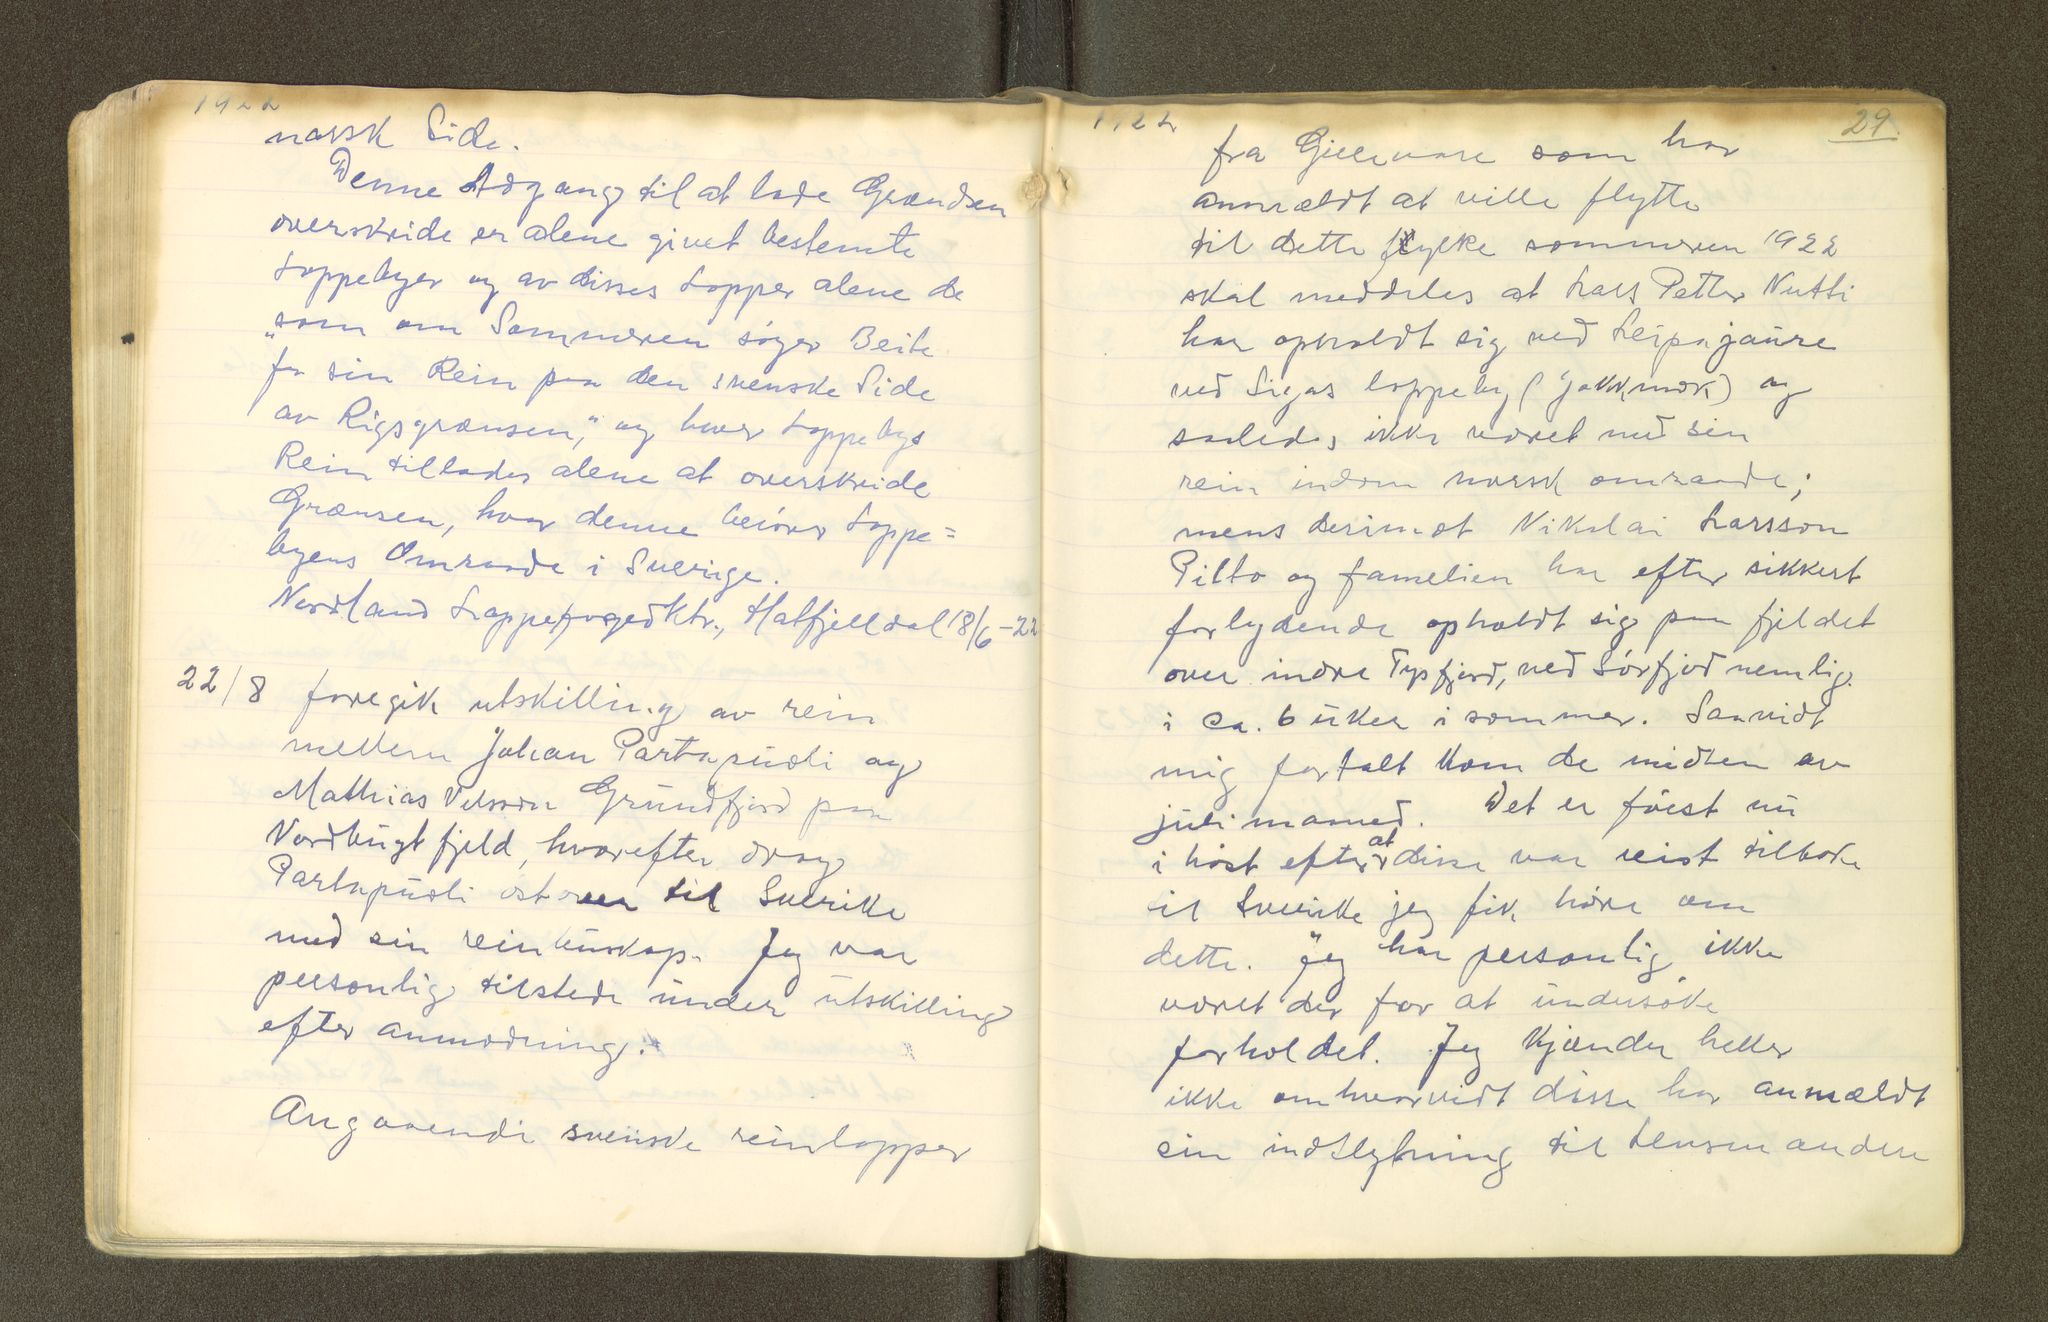 1922
norsk Side.
Denne Adgang til at lade Grændsen
overskride er alene givet bestemte
Lappebyer og av disses Lapper alene de
"som om Sommeren søger Beite
for sin Rein paa den svenske Side
av Rigsgrænsen," og hver Lappebys
Rein tillades alene at overskride
Grænsen, hvor denne berører Lappe=
byens Omraade i Sverige.
Nordland Lappefogedktr., Hatfjelldal 18/6-22
22/8 foregik utskilling av rein
mellem Johan Partapuoli og
Mathias Nilsson Grundfjord paa
Nordbugtfjeld, hvorefter drog
Partapuoli østover til Sverike
med sin reinbuskap. Jeg var
personlig tilstede under utskilling
efter anmodning.
Angaaende svenske reinlapper
1922
29.
fra Gellevare som har
anmældt at ville flytte
til dette fylke sommeren 1922
skal meddeles at Lars Petter Nutti
har opholdt sig ved Leipajaure
ved Sirgas lappeby (Jokkmok) og
saaledes ikke været med sin
rein indom norsk omraade;
mens derimot Nikolai Larsson
Pilto og famelien har efter sikkert
forlydende opholdt sig paa fjeldet
over indre Tysfjord, ved Sørfjord nemlig.
i ca. 6 uker i sommer. Saavidt
mig fortalt kom de midten av
juli maaned. Det er først nu
i høst efter at disse var reist tilbake
til Sverike jeg fik høre om
dette. Jeg har personlig ikke
været der for at undersøke
forholdet. Jeg kjænder heller
ikke om hvorvidt disse har anmældt
sin indflytning til Lensmanden